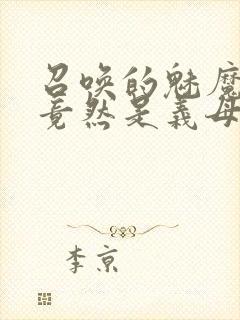 召唤的魅魔
竟然是义母
李京